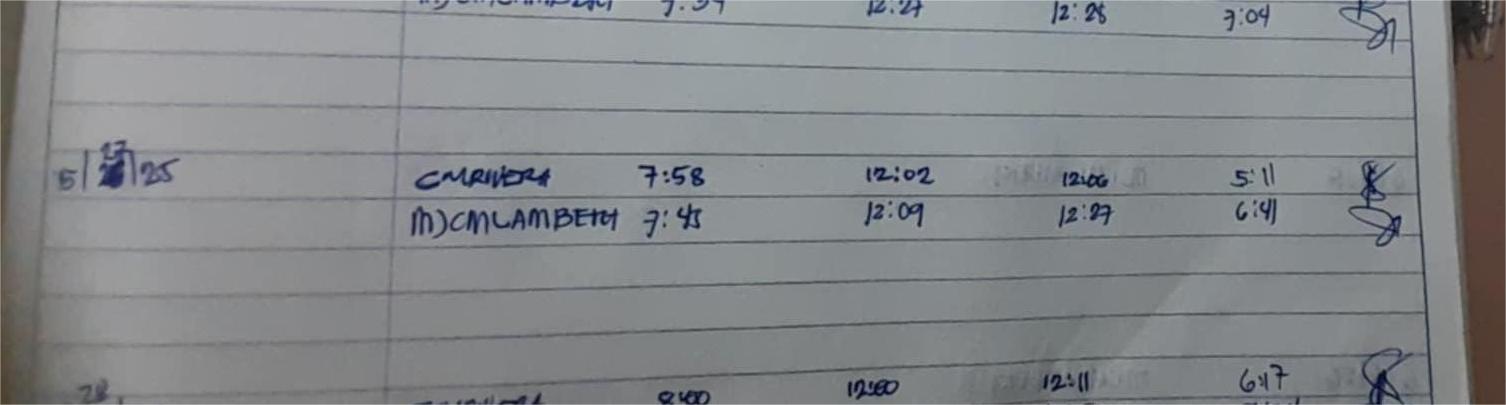 12:27 12:28 7:04
5/27/25 CMRIVERA 7:58 12:02 12:06 5:11
MJCMLAMBETH 7:45 12:09 12:27 6:41
28 8:00 12:00 12:11 6:17